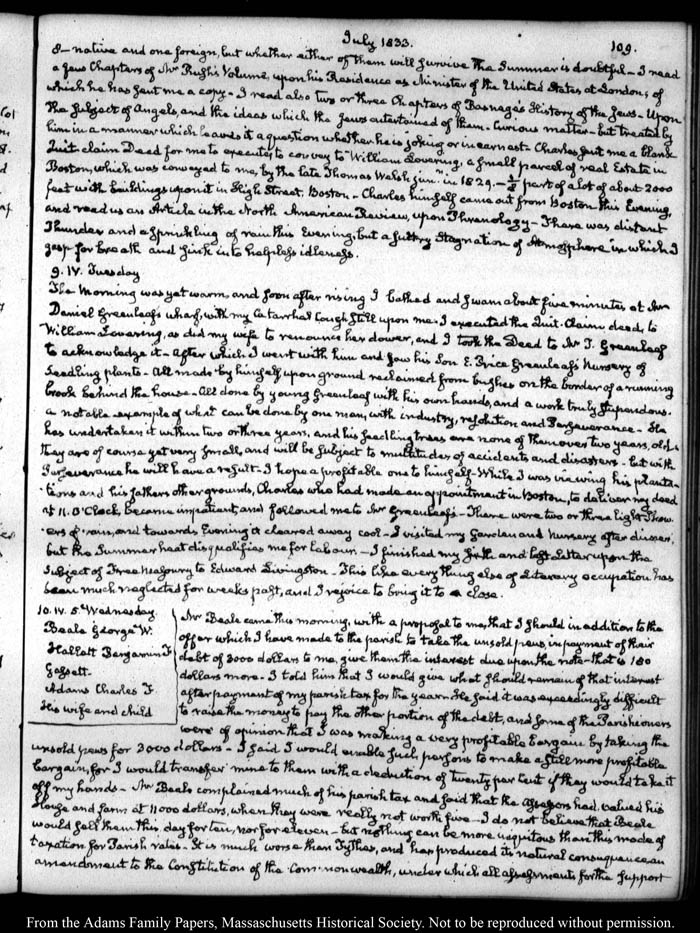 July 1833.
109.
8 – native and one foreign, but whether either of them will survive the Summer is doubtful – I read
a few Chapters of Mr Rush's Volume, upon his Residence as Minister of the United States at London, of
which he has sent me a copy – I read also two or three Chapters of Basnage's History of the Jews – Upon
the subject of Angels, and the ideas which the Jews entertained of them – Curious matter – but treated by
him in a manner which leaves it a question whether he is joking or in earnest – Charles sent me a blank
Quit-claim Deed for me to execute, to convey to William Lovering, a small parcel of real Estate in
Boston, which was conveyed to me, by the late Thomas Welsh junr. in 1829. – part of a lot of about 2000
feet with buildings upon it in High Street, Boston – Charles himself came out from Boston this Evening,
and read us an Article in the North American Review, upon Phrenology – There was distant
Thunder and a sprinkling of rain this Evening, but a sultry Stagnation of Atmosphere in which I
gasp for breath and sink into helpless idleness.
9. IV. Tuesday
The Morning was yet warm, and soon after rising I bathed and swam about five minutes at Mr
Daniel Greenleaf's wharf, with my Catarrhal Cough still upon me – I executed the Quit-Claim deed, to
William Lovering, as did my wife to renounce her dower, and I took the Deed to Mr T. Greenleaf
to acknowledge it – After which I went with him and saw his Son E. Price Greenleaf's Nursery of
Seedling plants – All made by himself upon ground reclaimed from bushes on the border of a running
brook behind the house – All done by young Greenleaf with his own hands, and a work truly stupendous.
a notable example of what can be done by one man, with industry, resolution and Perseverance – He
has undertaken it within two or three years, and his seedling trees are none of them over two years, old –
they are of course yet very small, and will be subject to multitudes of accidents and disasters – but with
Perseverance he will have a result – I hope a profitable one to himself – While I was viewing his planta-
tions and his fathers other grounds, Charles who had made an appointment in Boston, to deliver my deed
at 11. O'Clock, became impatient, and followed me to Mr Greenleaf's – There were two or three light Show-
ers of rain, and towards Evening it cleared away cool – I visited my Garden and Nursery after dinner,
but the Summer heat disqualifies me for labour – I finished my sixth and last Letter upon the
subject of Free Masonry to Edward Livingston – This like every thing else of Literary occupation has
been much neglected for weeks past, and I rejoice to bring it to a close.
10. IV. 5. Wednesday
Beale George W.
Hallett Benjamin F
Gassett.
Adams Charles F.
His wife and child
Mr Beale came this morning, with a proposal to me, that I should in addition to the
offer which I have made to the parish to take the unsold pews, in payment of their
debt of 2000 dollars to me, give them the interest due upon the note – that is 180
dollars more – I told him that I would give what should remain of that interest
after payment of my parish tax for the year – He said it was exceedingly difficult
to raise the money to pay the other portion of the debt, and some of the Parishioners
were of opinion that I was making a very profitable bargain by taking the
unsold pews for 2000 dollars – I said I would enable such persons to make a still more profitable
bargain, for I would transfer mine to them with a deduction of twenty per Cent if they would take it
off my hands – Mr Beale complained much of his parish tax and said that the Assessors had valued his
House and farm at 11000 dollars, when they were really not worth five – I do not believe that Beale
would sell them this day for ten, nor for eleven – but nothing can be more iniquitous than this mode of
taxation for Parish rates – It is much worse than Tythes, and has produced its natural consequence, an
amendment to the Constitution of the Commonwealth, under which all assessments for the support
From the Adams Family Papers, Massachusetts Historical Society. Not to be reproduced without permission.